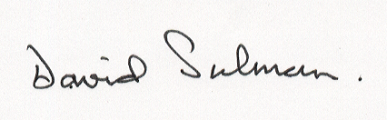 David Sulman.